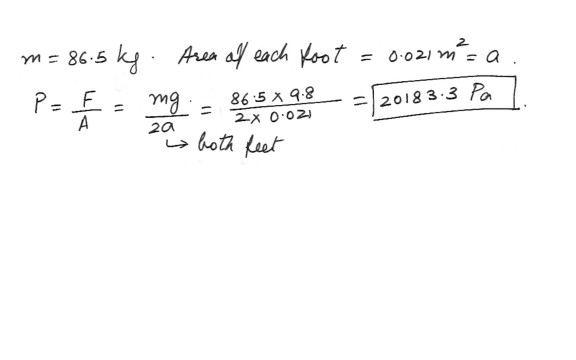 m = 86.5 kg. Area of each foot = 0.021 m² = a.
P = F/A = mg/2a = 86.5 x 9.8/2 x 0.021 = 20183.3 Pa.
↳ both feet